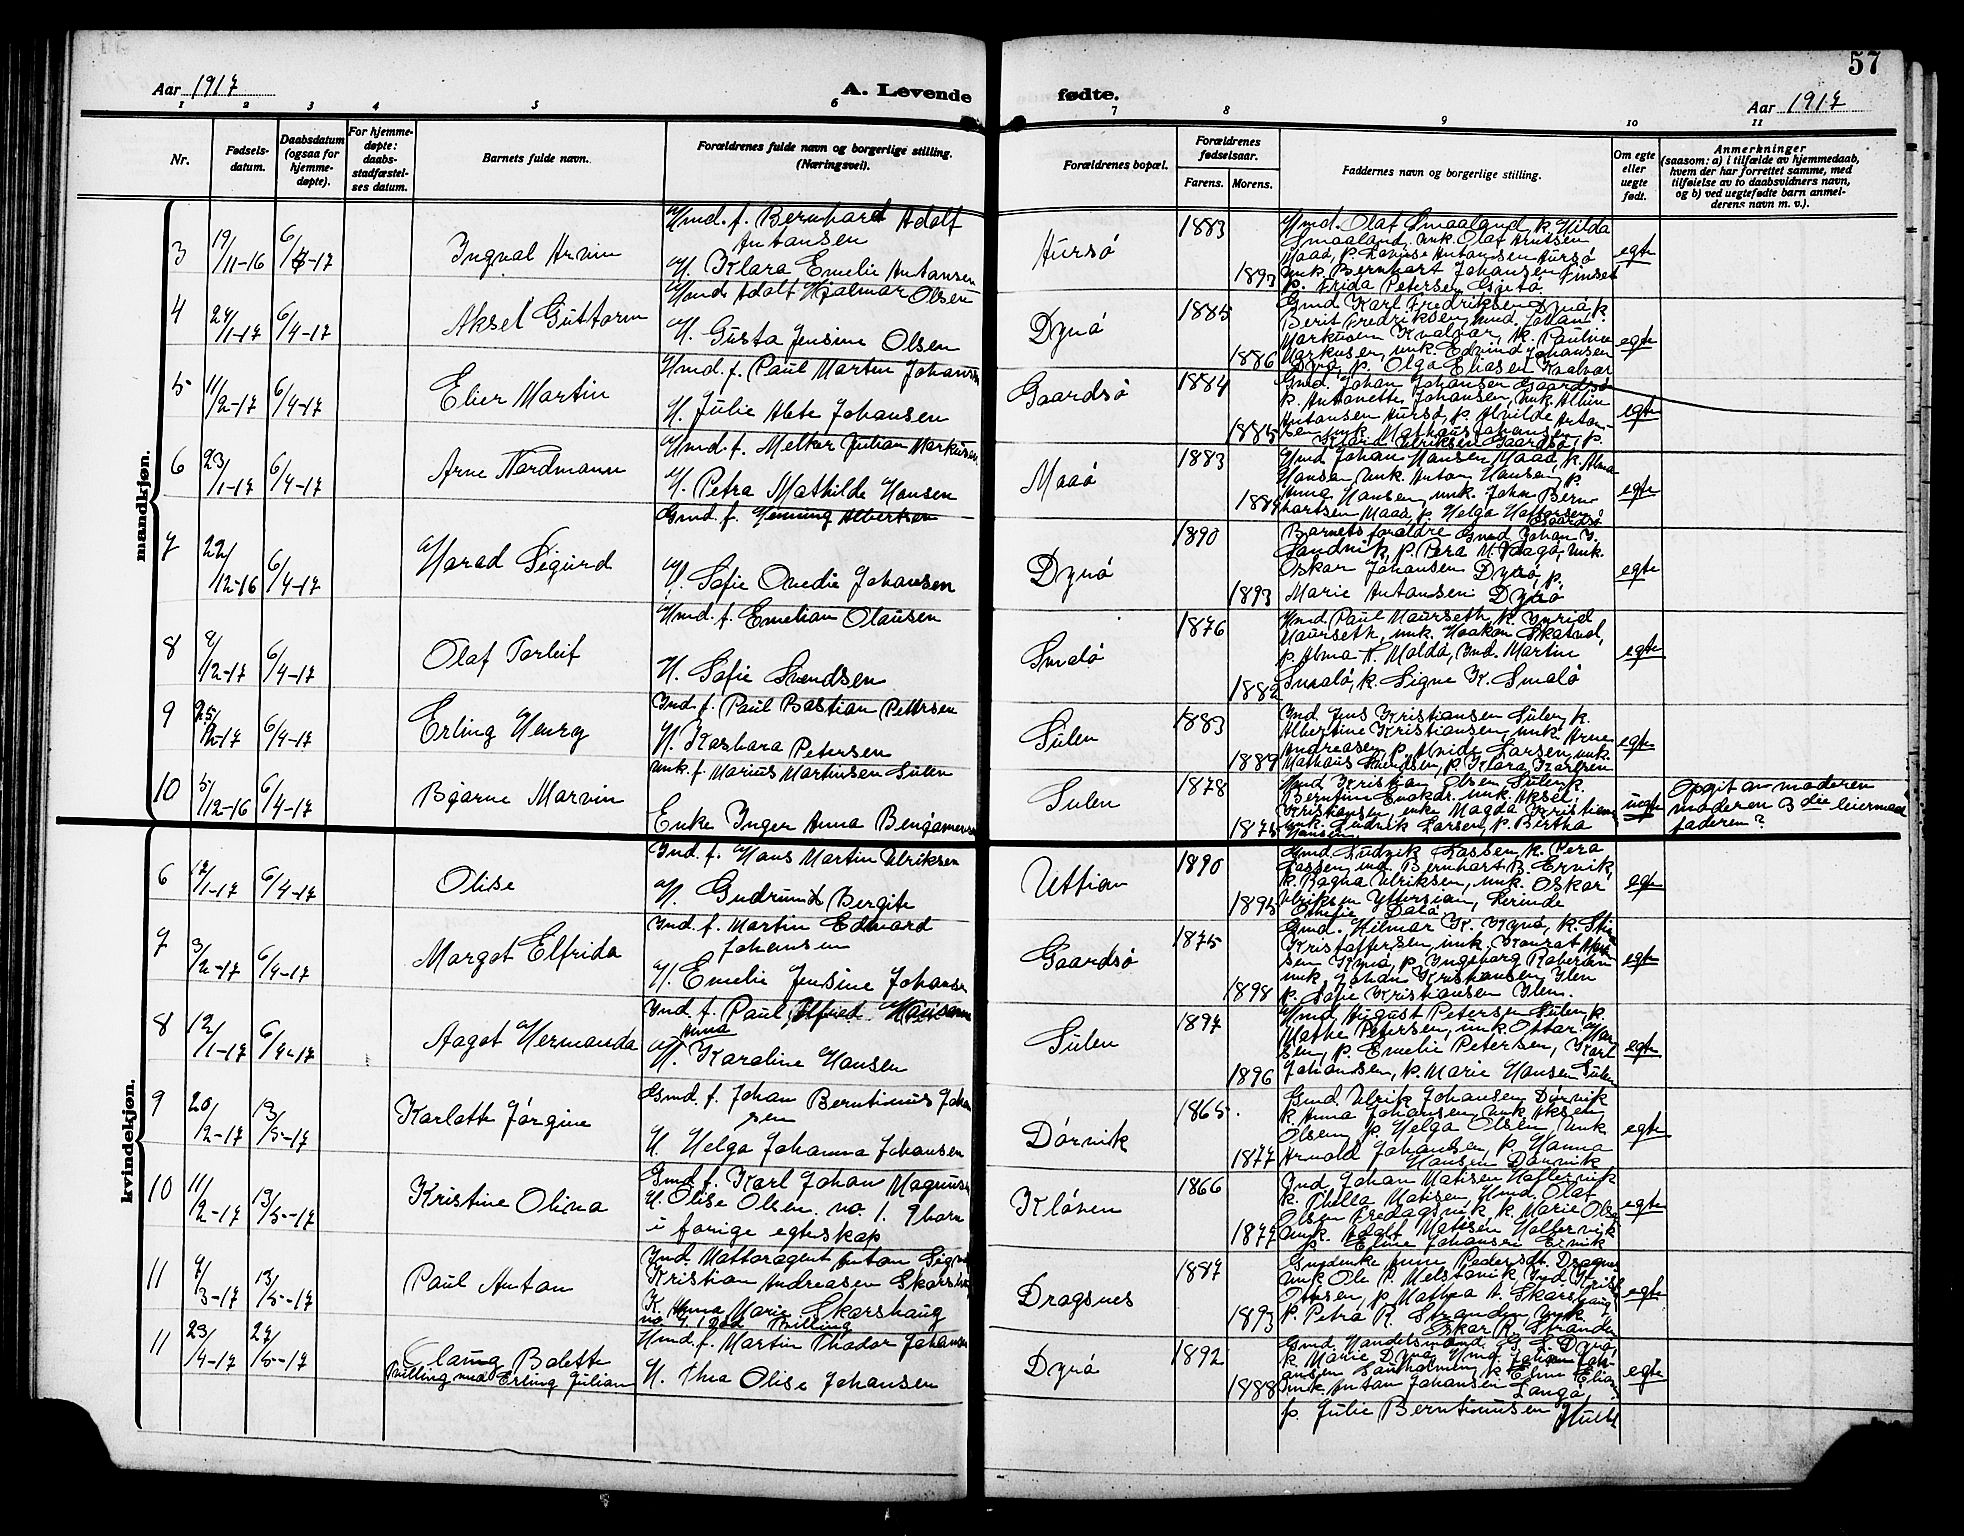 57
Aar 1917
A. Levende
fødte.
Aar 1917
1 2 3 4 5 6 7 8 9 10 11
Nr.
Fødsels-
datum.
Daabsdatum
(ogsaa for
hjemme-
døpte).
For hjemme-
døpte:
daabs-
stadfæstel-
ses datum.
Barnets fulde navn.
Forældrenes fulde navn og borgerlige stilling.
(Næringsvei).
Forældrenes bopæl.
Forældrenes
fødselsaar.
Farens. Morens.
Faddernes navn og borgerlige stilling.
Om egte
eller
uegte
født.
Anmerkninger
(saasom: a) i tilfælde av hjemmedaab,
hvem der har forrettet samme, med
tilføielse av to daabsvidners navn,
og b) ved uegtefødte barn anmel-
derens navn m. v.).
mandkjøn.
3 19/11-16 6/4-17 Ingval Arvin
Hmd. f. Bernhard Adolf
Antonsen
H. Klara Emelie Antonsen
Aursø 1883 1893
Hmd. Olaf Smaaland, k. Hilda
Smaaland, unk. Olaf Arntsen
Maaø, p. Lovise Antonsen Aursø
unk Bernhart Johansen Finset
p. Frida Petersen
egte
4 24/1-17 6/4-17 Aksel Guttorm
Hmd Adolf Hjalmar Olsen
H. Gusta Jensine Olsen
Dyrø 1885 1886
Gmd Karl Fredriksen Dyrø, k.
Berit Fredriksen, hmd. Johan
Markusen Kvalvær, k. Pauline
Markusen, unk. Edvind Johansen
Dyrø, p. Olga Eliasen Kvalvær
egte
5 11/2-17 6/4-17 Elier Martin
Hmd. f. Paul Martin Johansen
H. Julie Alete Johansen
Gaardsø 1884 1885
Gmd. Johan Johansen Gaardsø
k. Antonette Johansen, unk Albin
Antonsen Aursø, p. Alvilde Anton-
sen unk Mathæus Johansen p.
Ulriksen Gaardsø, p.
egte
6 23/1-17 6/4-17 Arne Nordmann
Hmd. f. Melkor Julian Markusen
H. Petra Mathilde Hansen
Maaø 1883 1884
Hmd Johan Hansen Maaø, k. Alma
Hansen unk. Anton Hansen, p.
Anna Hansen, unk. John Bern-
hartsen Maaø, p. Helga
Gaardsø
egte
7 22/12-16 6/4-17 Harad Sigurd
Gmd. f. Henning Albertsen
H. Sofie Ovedie Johansen
Dyrø 1890 1893
Barnets forældre Gmd Johan J.
Sandvik, p. Pera M. Vaagø, unk.
Oskar Johansen Dyrø, p.
Marie Antonsen Dyrø
egte
8 8/12-17 6/4-17 Olaf Torleif
Hmd. f. Emelian Olausen
H. Sofie Svendsen
Smalø 1876 1882
Hmd Paul Maurseth k. Ingrid
Maurseth, unk. Haakon Skatval,
p. Alma T. Moldø, Ind. Martin
Smalø, k. Signe K. Smalø
egte
9 25/12-17 6/4-17 Erling Henry
Ind. f. Paul Bastian Pettersen
H. Kasbara Petersen
Sulen 1883 1889
Ind. Jens Kristiansen Sulen, k.
Albertine Kristiansen, unk. Arne
Andreasen, p. Alvide Larsen, unk.
Mathæus Knutsen, p. Klara Karlsen
egte
10 5/12-16 6/4-17 Bjarne Marvin
unk. f. Marius Martinsen Sulen
Enke Inger Anna Bengamensen
Sulen 1878 1875
Hmd Kristian Olsen Sulen, k.
Berntine Enokdr. unk. Aksel
Kristiansen, unk Magda Kristians.
unk. Ludvik Larsen, p. Bertha
Hansen
uegte
Opgit av moderen
moderen 3 die leiermaal
faderen?
kvindekjøn.
6 12/1-17 6/4-17 Olise
Ind. f. Hans Martin Ulriksen
H. Gudrund Bergite
Uttian 1890 1895
Gmd. Ludvik Lassen, k. Pera
Lassen, md. Bernhart B. Ervik,
k. Ragna Ulriksen, unk. Oskar
Ulriksen Yttersian, Lerinde
Othefie Dalø
egte
7 3/2-17 6/4-17 Margot Elfrida
Ind. f. Martin Edward
Johansen
H. Emelie Jensine Johansen
Gaardsø 1875 1898
Gmd. Hilmar K. Kyrø, k. Stin
Kristoffersen, unk. Konrat
sen Kyrø, p. Ingeborg Robertsen
unk Johan Kristiansen Ilen
p. Sofie Kristiansen Ilen.
egte
8 12/1-17 6/4-17 Aagot Hermanda
Ind. f. Paul Alfred Hansen
Anna
H. Karoline Hansen
Sulen 1897 1896
Hmd August Petersen Sulen, k.
Mathe Petersen, unk Ottar Han-
sen, p. Emelie Petersen, Karl
Johansen, p. Marie Hansen Sulen
egte
9 20/2-17 13/5-17 Karlotte Jørgine
Gmd. f. Johan Berntinus Johan-
sen
H. Helga Johanna Johansen
Dørvik 1865. 1877
Gmd. Ulrik Johansen Dørvik
k Anna Johansen, unk Aksen
Olsen, p. Helga Olsen, unk
Arnold Johansen, p. Hanna
Hansen Dørvik
egte
10 11/2-17 13/5-17 Kristine Olina
Gmd. f. Karl Johan Magnusen
H. Olise Olsen. no. 1. 9 barn
i forige egteskap
Kløven 1866 1877
Ind. Johan Matisen Haftervik
k. Thella Matisen, Hmd. Olaf
Olsen Fredagsvik, k. Marie Olsen
unk. Adolf Matisen Haltervik
p. Eline Johansen Ervik
egte
11 4/3-17 13/5-17 Paul Anton
Ind. Mattoragent Anton Sigvart
Kristian Andreasen Skarshaug
K. Anna Marie Skarshaug
no 4. 1 død tvilling
Dragsnes 1887 1893
Gmdenke Anne Pedersdt. Dragsnes
unk Ole P. Melstavik, Ind Krist
Ottesen, p. Mathea A. Skarshaug
p. Petra R. Stranden, unk.
Oskar R. Stranden
egte
11 23/4-17 27/5-17 Claung Bolette
Tvilling med Erling Julian
Hmd. f. Martin Thodor Johansen
H. Thea Olise Johansen
Dyrø 1892 1888
Gmd. Handelsmand G. L. Dyrø,
k. Marie Dyrø, Hmd. Johan Joh-
ansen k Eline Elian
unk. Anton Johansen Langø,
p. Julie Berntinusen Hulth
egte